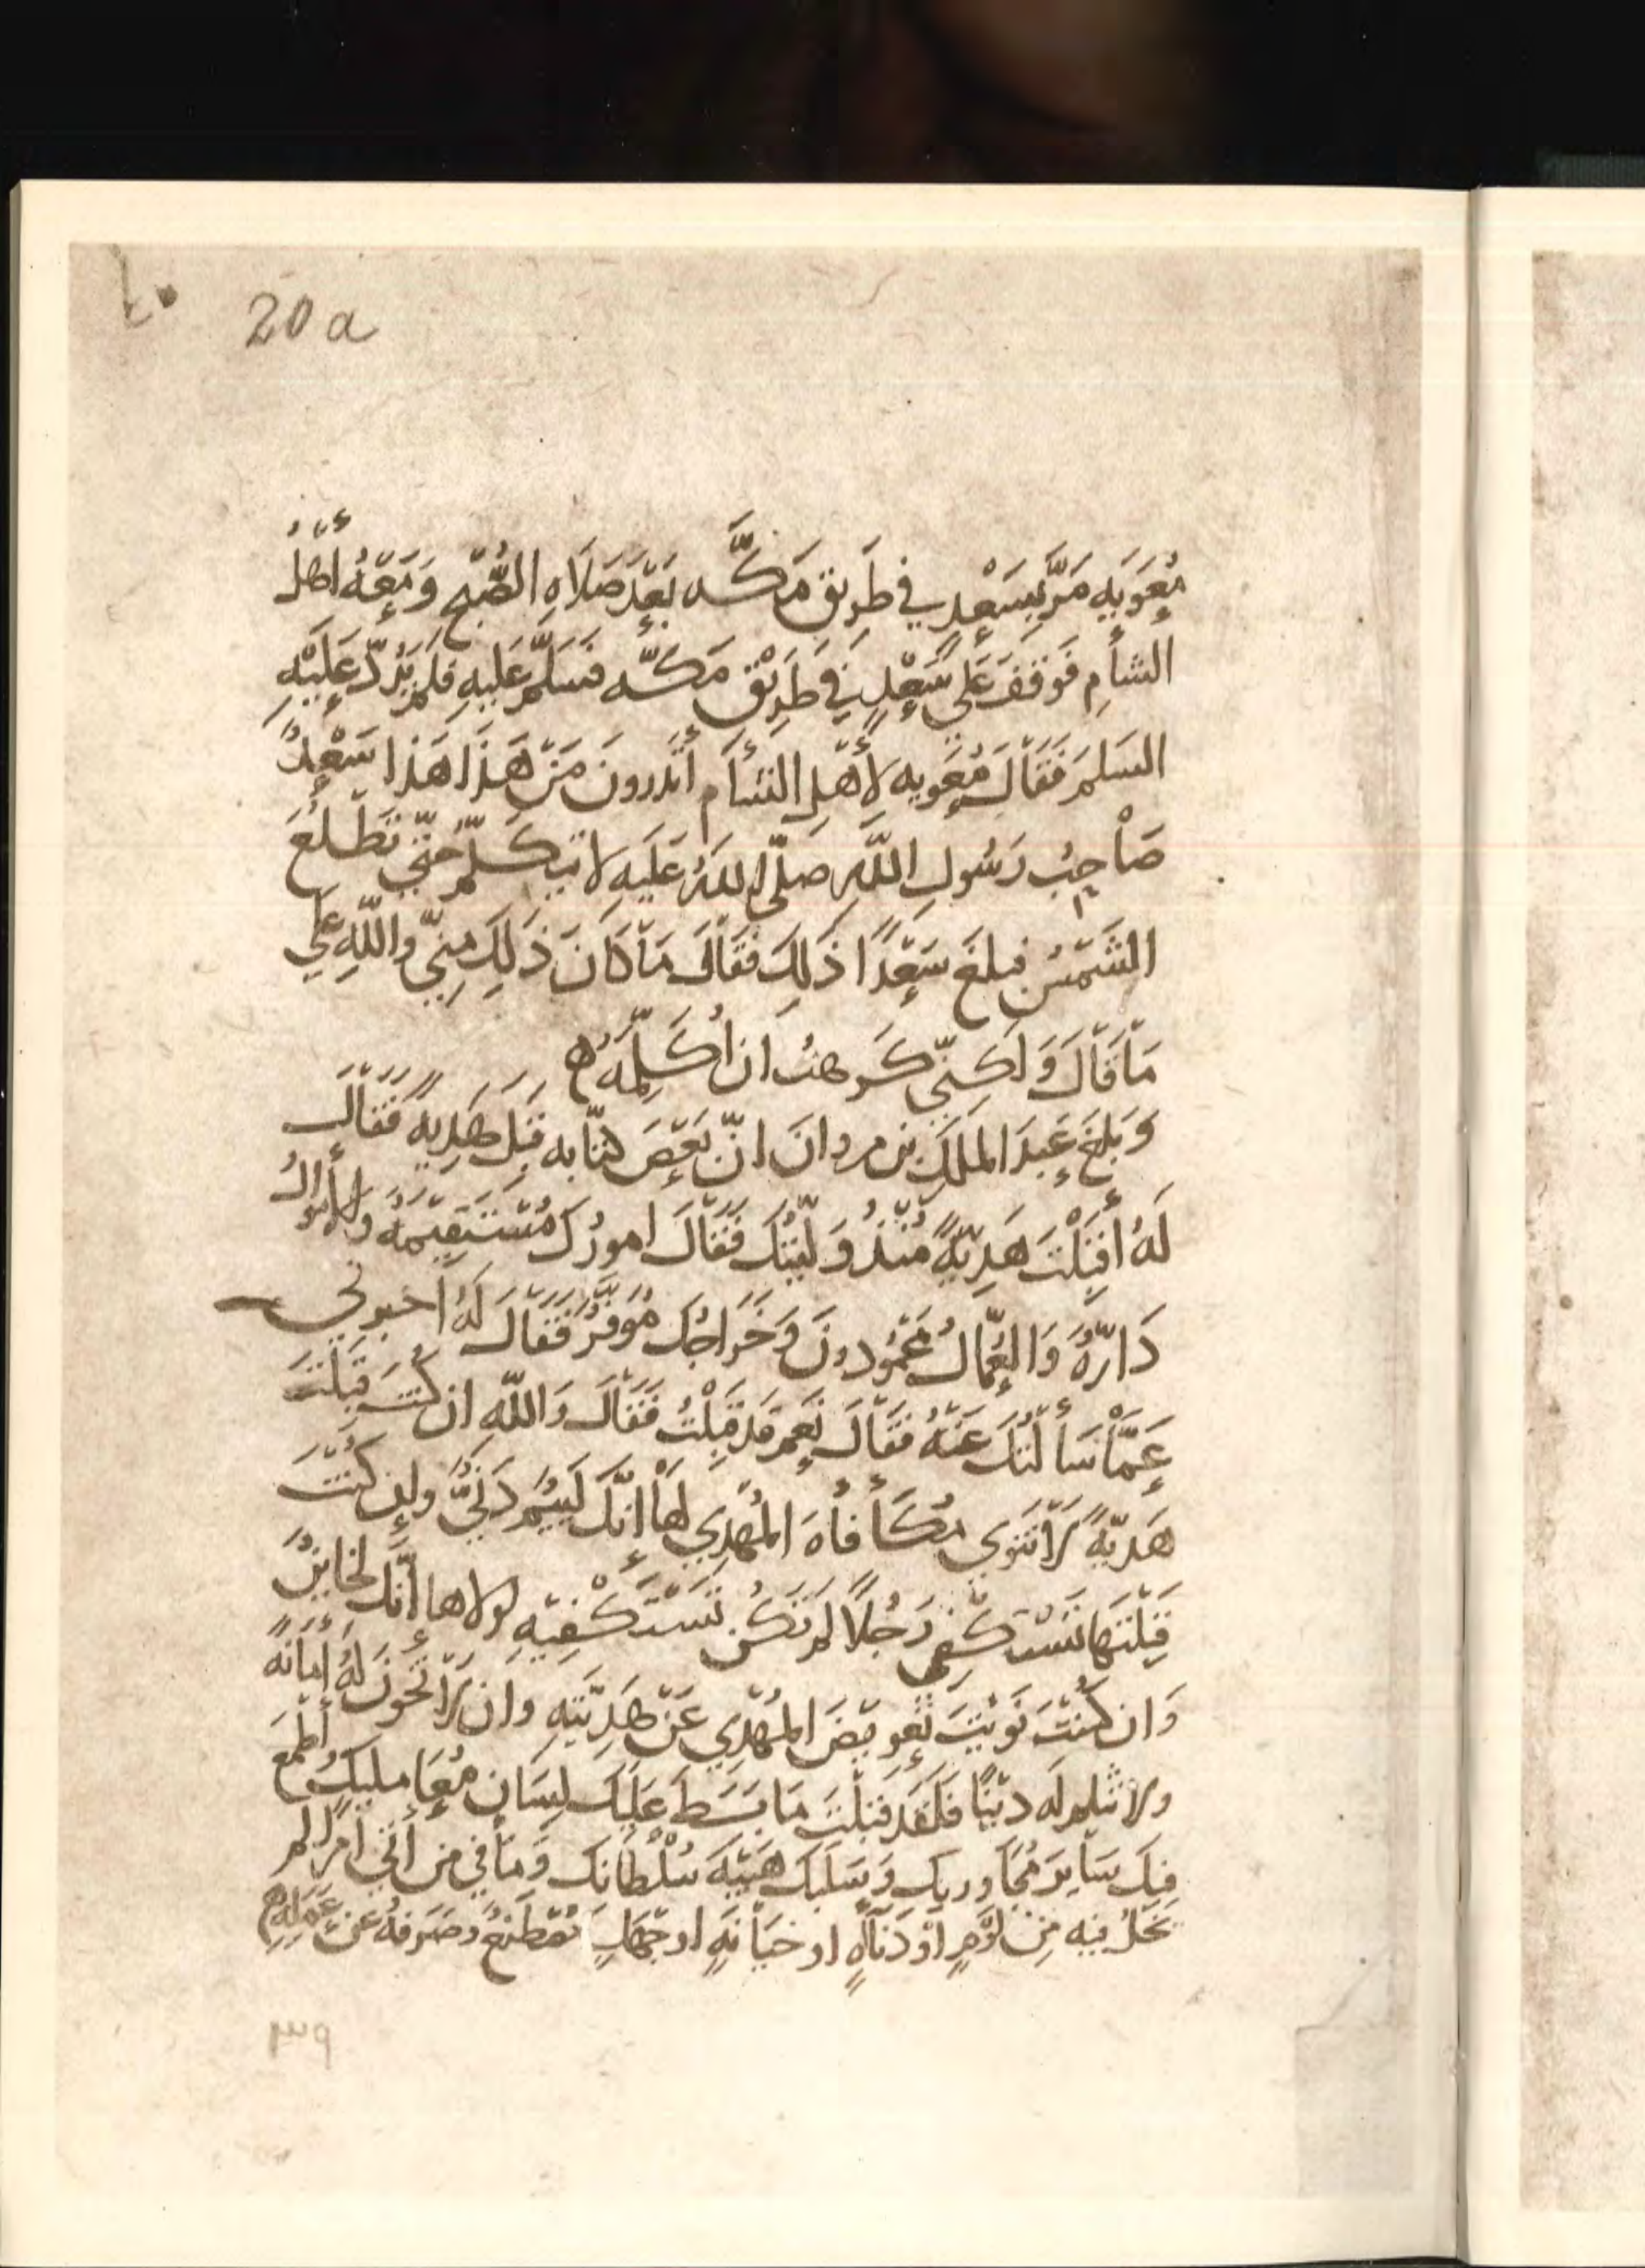 20 a
مُعَوِيَه مَرَّ بِسَعْدٍ في طَرِيقِ مَكَّه بَعْدَ صَلَاهِ الصُّبْحِ وَمَعَهُ أَهْلُ
الشأمِ فَوَقَفَ عَلَى سَعْدٍ في طَرِيْقِ مَكَّه فسَلَّمَ عَلَيهِ فلَم يَرُدّ عَلَيْهِ
السَلمَ فَقَالَ مُعَويه لِأَهْلِ الشأمِ أَتَدرونَ مَنْ هَذَا هَذا سَعْدٌ
صَاحِبُ رَسُولِ اللَّهِ صلّى اللهُ عَلَيهِ لا يَتَكَلَّمُ حَتّي تَطْلُعَ
الشَمْسُ فبلغَ سَعْدًا ذَلِكَ فقَالَ مَا كَانَ ذَلِكَ مِنِّي واللَّهِ عَلَي
مَا قَالَ وَلَكِنّي كَرهتُ ان أُكَلِّمَهُ ه
وَبلغَ عَبدَ المَلكِ بن مروانَ انّ بَعْضَ كتّابه قَبِلَ هَدِيهً فَقَالَ
لَهُ أَقَبِلْتَ هَدِيّهً مُنْذُ وَلّيْتُكَ فَقَالَ امورُكَ مُسْتَقِيمَهٌ والأَموالُ
دَارَّهٌ وَالعُمّالُ مَحْمُودونَ وَخَراجُك مُوَفَّرٌ فَقَالَ لَهُ اخبرني
عَمَّا سَأَلْتُكَ عَنْهُ فقَالَ نَعَم قَد قَبِلْتُ فَقَالَ وَاللّهِ ان كُنتَ قَبِلْتَ
هَدِيّهً لَا تَنوي مُكَأَفأهَ المُهْدِي لهَا إِنَّكَ لَلَئِيْمٌ دَنيٌّ ولإن كُنْتَ
قَبِلْتَهَا تَسْتَكْفي رَجُلاً لم تَكُن تَسْتَكْفِيْهِ لولاها إِنَّك لخَاينٌ
وَان كُنْتَ نَوَيْتَ تَعويْضَ المُهْدِي عَنْ هَدِيَّتِهِ وان لَا تَخُونَ لَهُ أَمَانَهً
ولا تثلم لَه دِيْنًا فَلَقَد قَبلْتَ مَا بَسَطَ عَلَيكَ لِسَانَ مُعَامليك وأَطْمَعَ
فِيكَ سَايرَ مُجَاوريك وَسَلَبكَ هَيْبَهَ سُلْطَانِك وَمَا في من أَتَي امرًا لم
يَخْلُ فيه مِن لُؤمٍ أوْ دَنَاأهٍ او خيَانَهٍ او جَهْلٍ مُصْطَنَعٌ وصَرَفَهُ عن عَمَلِهِ ه
٣٩